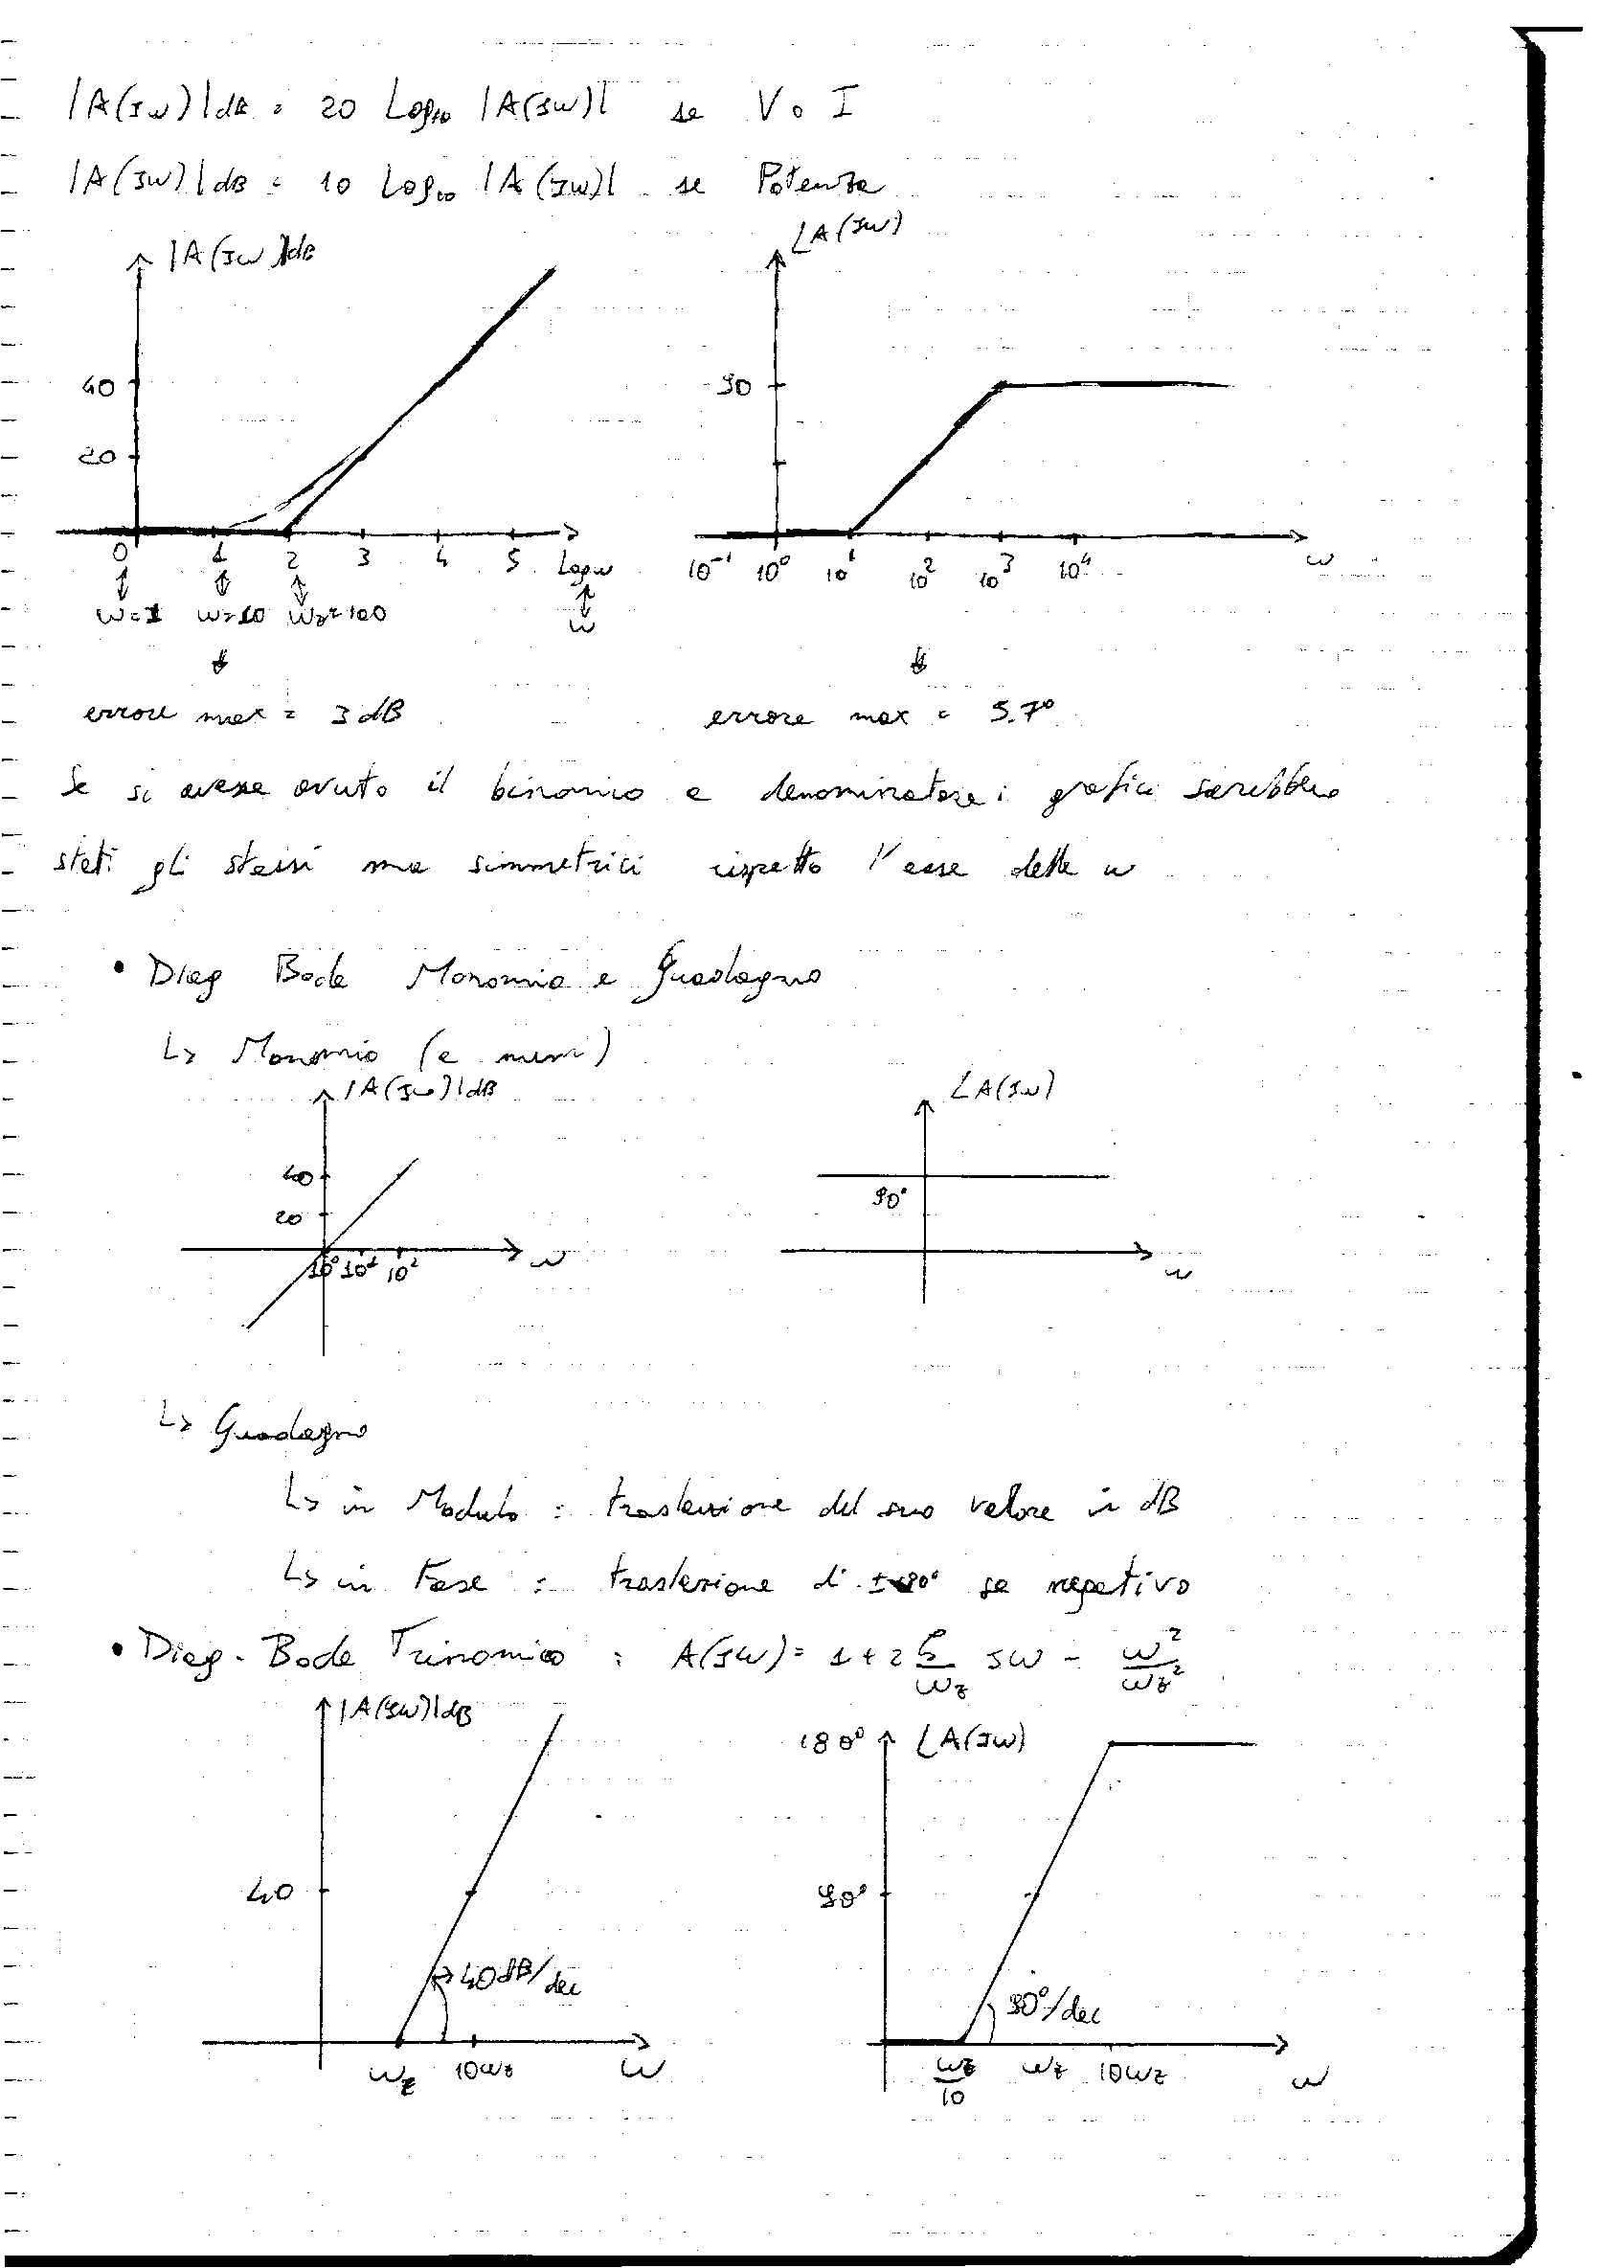 |A(jω)|dB = 20 Log10 |A(jω)| se V o I
|A(jω)|dB = 10 Log10 |A(jω)| se Potenza
|A(jω)|dB
∠A(jω)
40
90
20
0 1 2 3 4 5 Logω
10⁻¹ 10⁰ 10¹ 10² 10³ 10⁴ ω
ω=1 ω=10 ωz=100 ω
errore max = 3 dB
errore max = 5.7°
Se si avesse avuto il binomio a denominatore i grafici sarebbero
stati gli stessi ma simmetrici rispetto l'asse delle ω
• Diag Bode Monomio e Guadagno
↳ Monomio (a num)
|A(jω)|dB
∠A(jω)
40
90°
20
10⁰ 10¹ 10² ω
ω
↳ Guadagno
↳ in Modulo : traslazione del suo valore in dB
↳ in Fase : traslazione di ±180° se negativo
• Diag. Bode Trinomio : A(jω) = 1 + 2 ξ/ωz jω - ω²/ωz²
|A(jω)|dB
180° ∠A(jω)
40
90°
40dB/dec
90°/dec
ωz 10ωz ω
ωz/10 ωz 10ωz ω